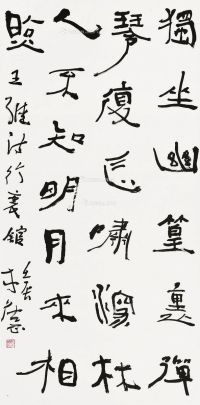 獨坐幽篁裏彈
琴復長嘯深林
人不知明月來相
照 王維詩竹裏館